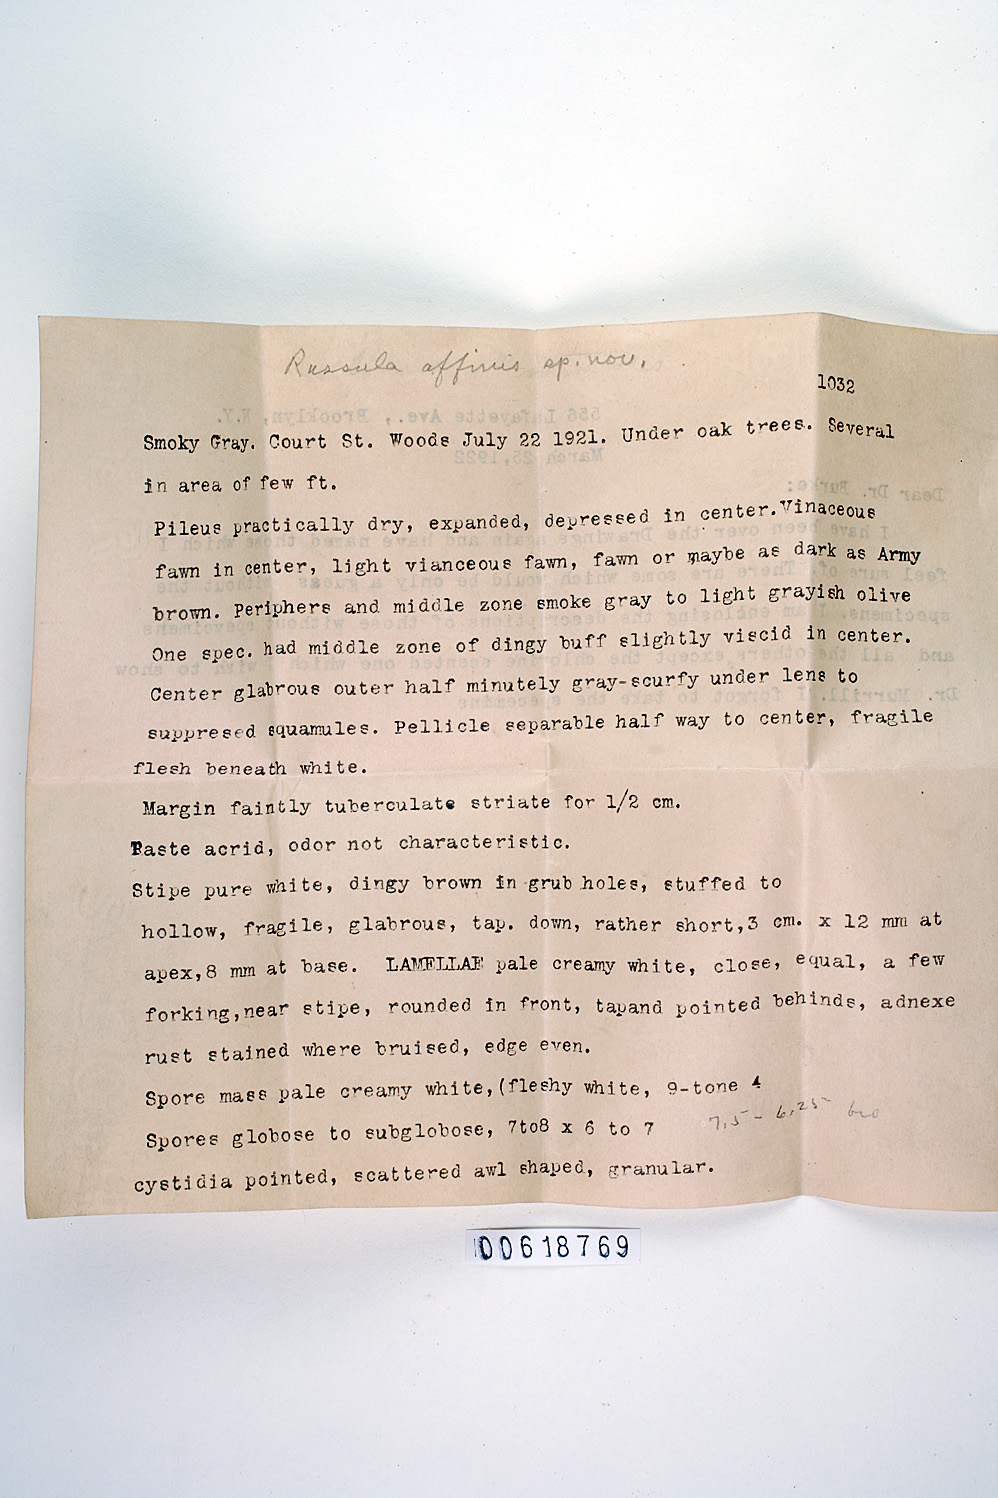 Russula affinis sp. nov.
1032
Smoky Gray. Court St. Woods July 22 1921. Under oak trees. Several
in area of few ft.
Pileus practically dry, expanded, depressed in center. Vinaceous
fawn in center, light vianceous fawn, fawn or maybe as dark as Army
brown. Periphers and middle zone smoke gray to light grayish olive
One spec. had middle zone of dingy buff slightly viscid in center.
Center glabrous outer half minutely gray-scurfy under lens to
suppresed squamules. Pellicle separable half way to center, fragile
flesh beneath white.
Margin faintly tuberculate striate for 1/2 cm.
Taste acrid, odor not characteristic.
Stipe pure white, dingy brown in grub holes, stuffed to
hollow, fragile, glabrous, tap. down, rather short,3 cm. x 12 mm at
apex,8 mm at base. LAMELLAE pale creamy white, close, equal, a few
forking,near stipe, rounded in front, tapand pointed behinds, adnexe
rust stained where bruised, edge even.
Spore mass pale creamy white,(fleshy white, 9-tone 4
Spores globose to subglobose, 7to8 x 6 to 7 7.5 - 6.25
cystidia pointed, scattered awl shaped, granular.
00618769